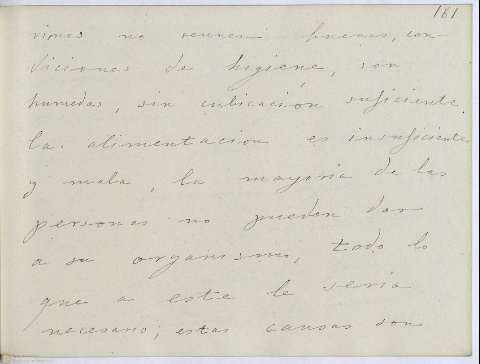 161
vimos no reunen buenas, con-
diciones de higiene, son
humedas, sin
suficiente.
la. alimentacion es insuficiente
y mala, la mayoria de las
personas no pueden dar
a su organismo, todo lo
que a este le seria
necesario; estas causas son